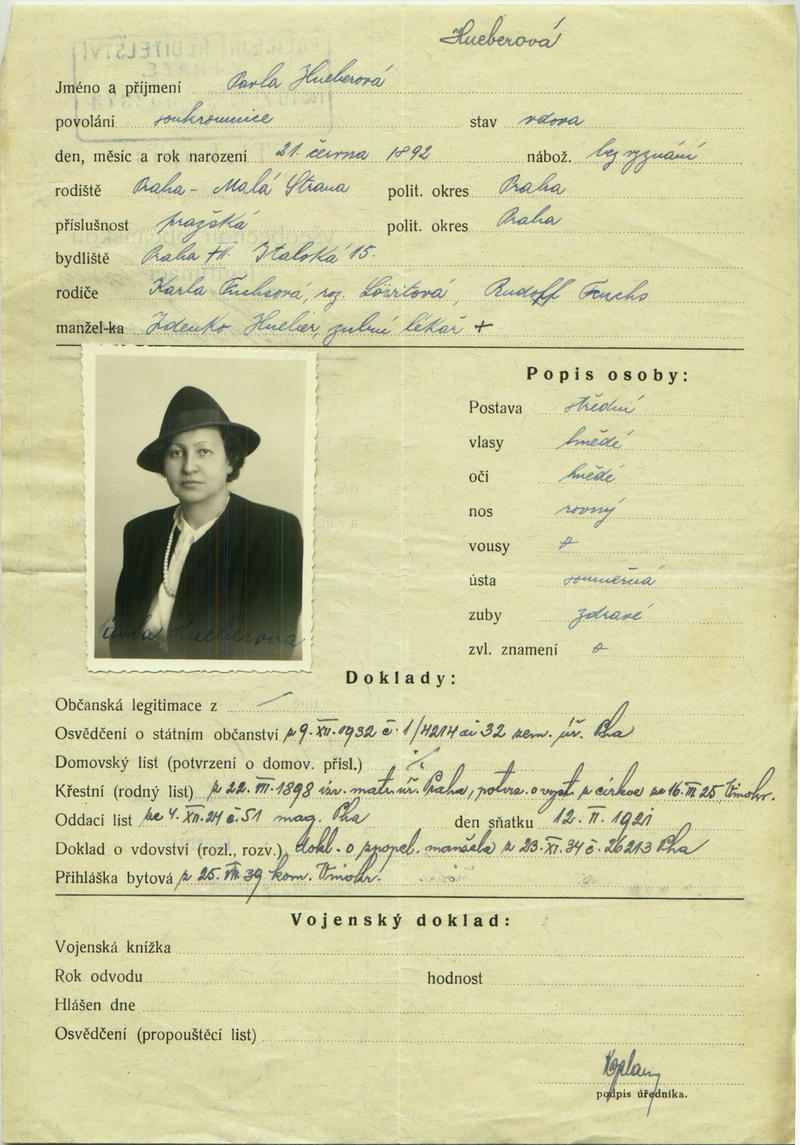 Hueberová
Jméno a příjmení Pavla Hueberová
povolání soukromnice stav vdova
den, měsíc a rok narození 21. června 1892 nábož. bez vyznání
rodiště Praha - Malá Strana polit. okres Praha
příslušnost pražská polit. okres Praha
bydliště Praha XII. Italská 15.
rodiče Karla Fuchsová, roz. Löwitová, Rudolf Fuchs
manžel-ka Zdenko Hueber, zubní lékař +
Popis osoby:
Postava střední
vlasy hnědé
oči hnědé
nos rovný
vousy
ústa souměrná
zuby zdravé
zvl. znamení
Pavla Hueberova
Doklady:
Občanská legitimace z
Osvědčení o státním občanství z 9. XII. 1932 č. 1/4214 ai 32 zem. úř. Pha
Domovský list (potvrzení o domov. přísl.) %
Křestní (rodný list) z 22. VII. 1898 izr. matr. úř. Praha, potvrz. o vyst. z církve ze 16. III 25 Vinohr.
Oddací list ze 4. XII. 24 č. 51 mag. Pha den sňatku 12. II. 1921
Doklad o vdovství (rozl., rozv.) dokl. o zpopel. manžela z 23. XI. 34 č. 26213 Pha
Přihláška bytová z 25. VIII. 39 kom. Vinohr.
Vojenský doklad:
Vojenská knížka
Rok odvodu hodnost
Hlášen dne
Osvědčení (propouštěcí list)
podpis úředníka.